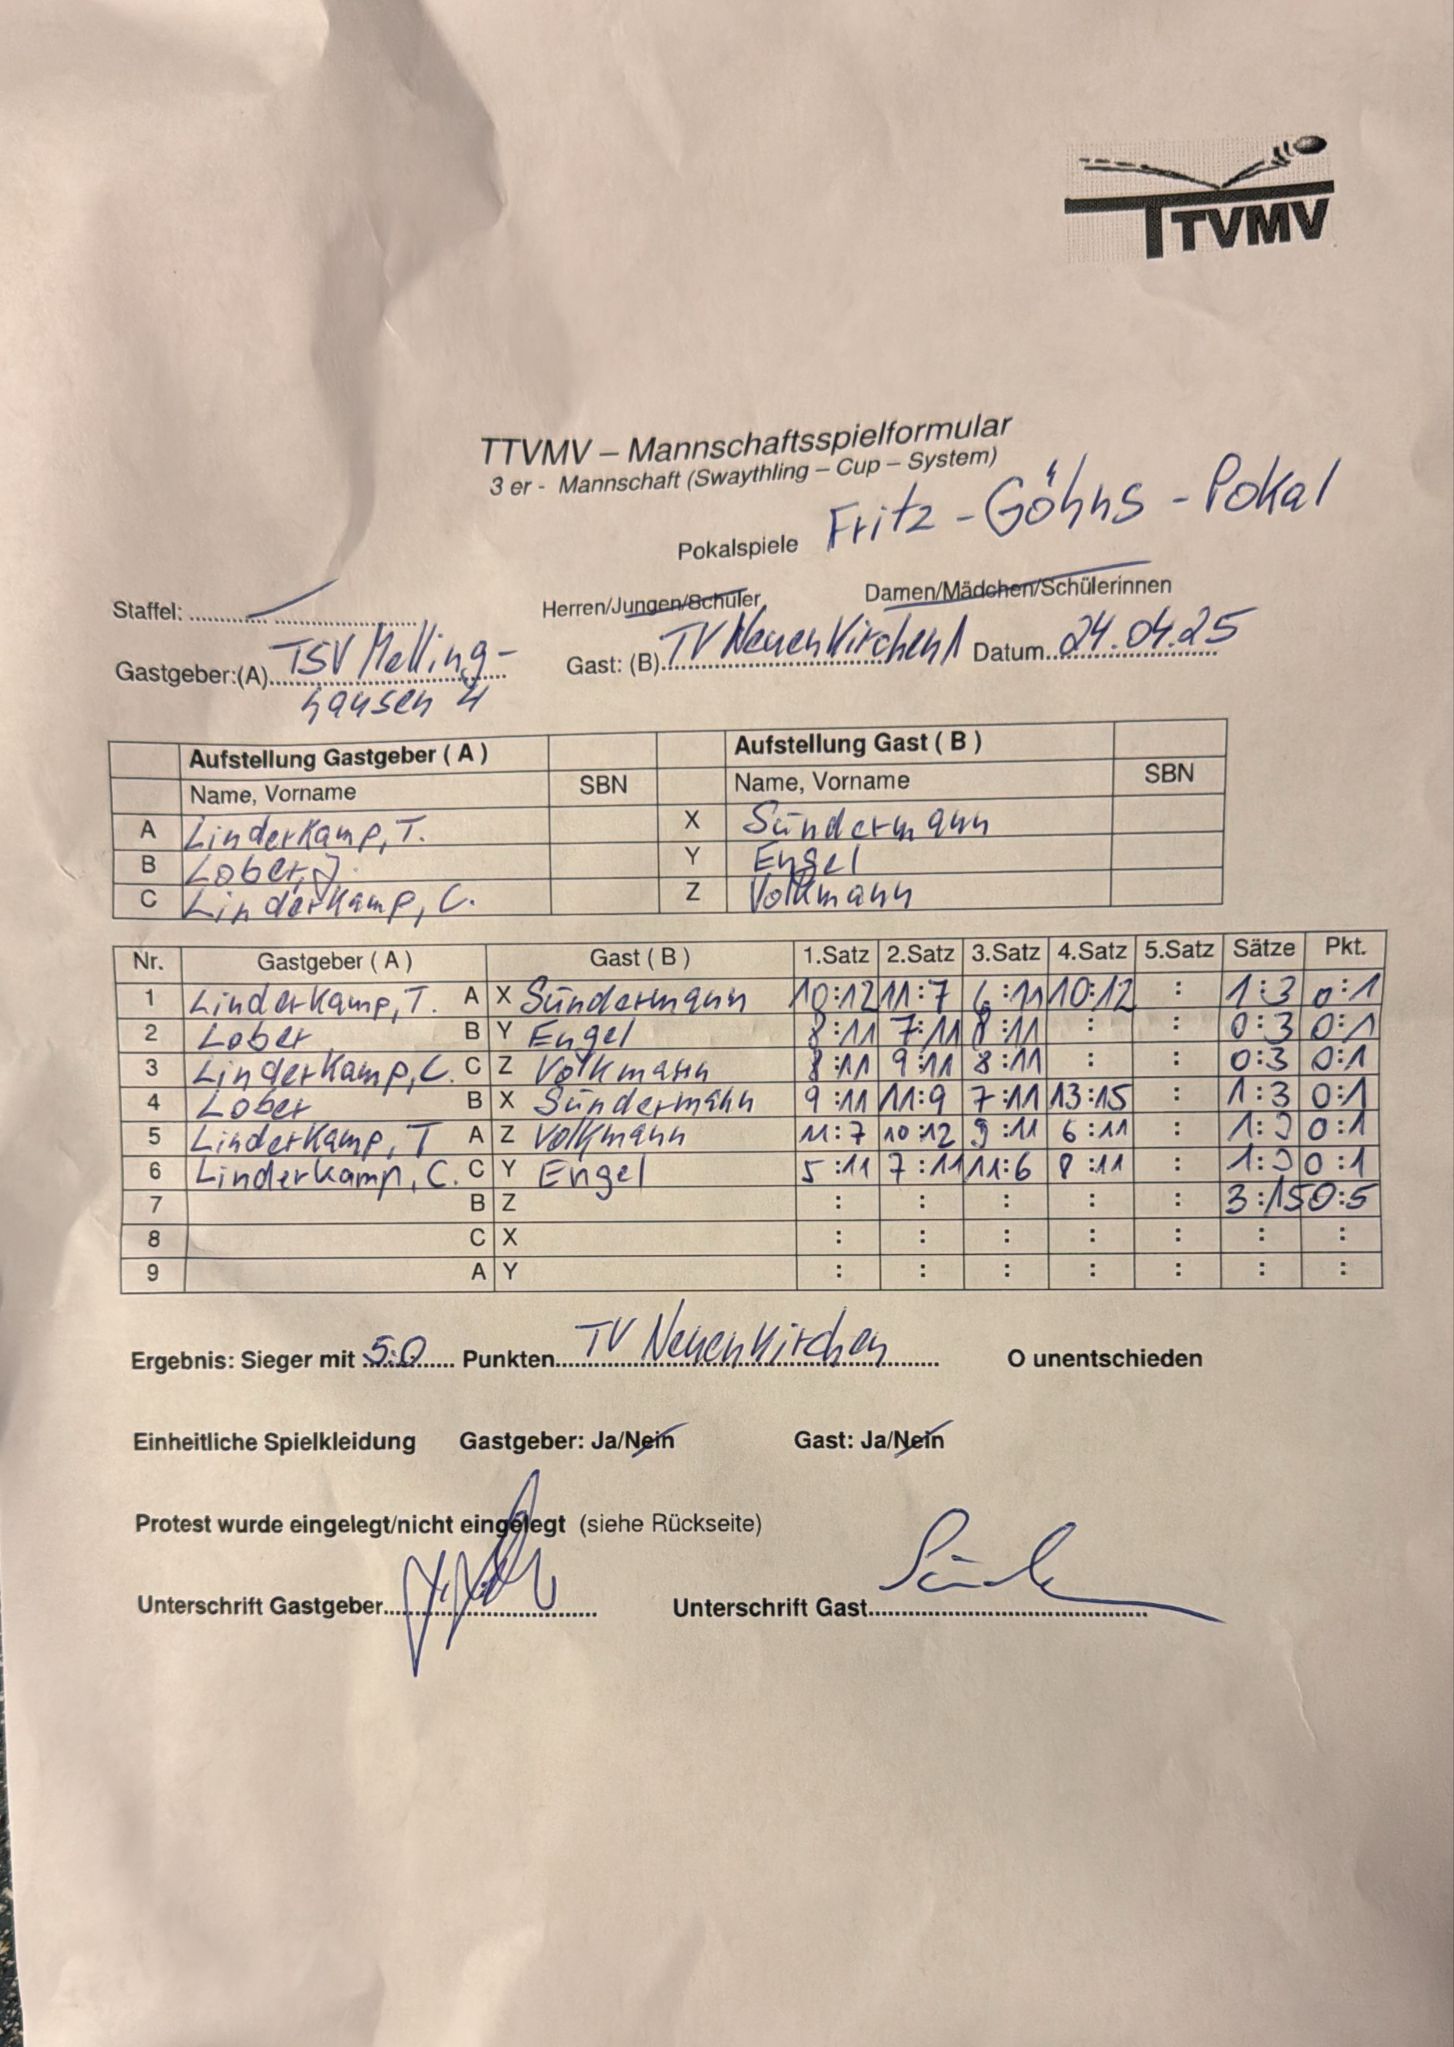 TTVMV
TTVMV – Mannschaftsspielformular
3 er - Mannschaft (Swaythling – Cup – System)
Pokalspiele Fritz-Göhns-Pokal
Staffel: .......... Herren/Jungen/Schüler Damen/Mädchen/Schülerinnen
Gastgeber:(A) TSV Melling- Gast: (B) TV Neuenkirchen 1 Datum 24.04.25
hausen 4
Aufstellung Gastgeber ( A ) Aufstellung Gast ( B )
Name, Vorname SBN Name, Vorname SBN
A Linderkamp, T. X Sündermann
B Lober, J. Y Engel
C Linderkamp, C. Z Volkmann
Nr. Gastgeber ( A ) Gast ( B ) 1.Satz 2.Satz 3.Satz 4.Satz 5.Satz Sätze Pkt.
1 Linderkamp, T. A X Sündermann 10:12 11:7 6:11 10:12 : 1:3 0:1
2 Lober B Y Engel 8:11 7:11 8:11 : : 0:3 0:1
3 Linderkamp, C. C Z Volkmann 8:11 9:11 8:11 : : 0:3 0:1
4 Lober B X Sündermann 9:11 11:9 7:11 13:15 : 1:3 0:1
5 Linderkamp, T A Z Volkmann 11:7 10:12 9:11 6:11 : 1:3 0:1
6 Linderkamp, C. C Y Engel 5:11 7:11 11:6 8:11 : 1:3 0:1
7 B Z : : : : : 3:15 0:5
8 C X : : : : : : :
9 A Y : : : : : : :
Ergebnis: Sieger mit 5:0 Punkten TV Neuenkirchen O unentschieden
Einheitliche Spielkleidung Gastgeber: Ja/Nein Gast: Ja/Nein
Protest wurde eingelegt/nicht eingelegt (siehe Rückseite)
Unterschrift Gastgeber Unterschrift Gast